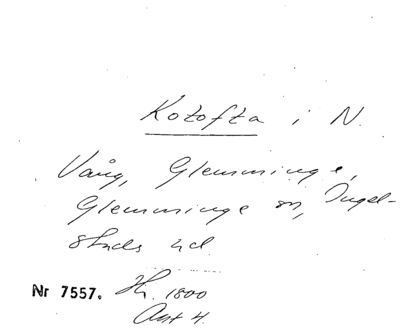 Kotofta i N.
Vång, Glemminge,
Glemminge sn, Ingel-
stads hd
Nr 7557. Hr. 1800
Akt 4.